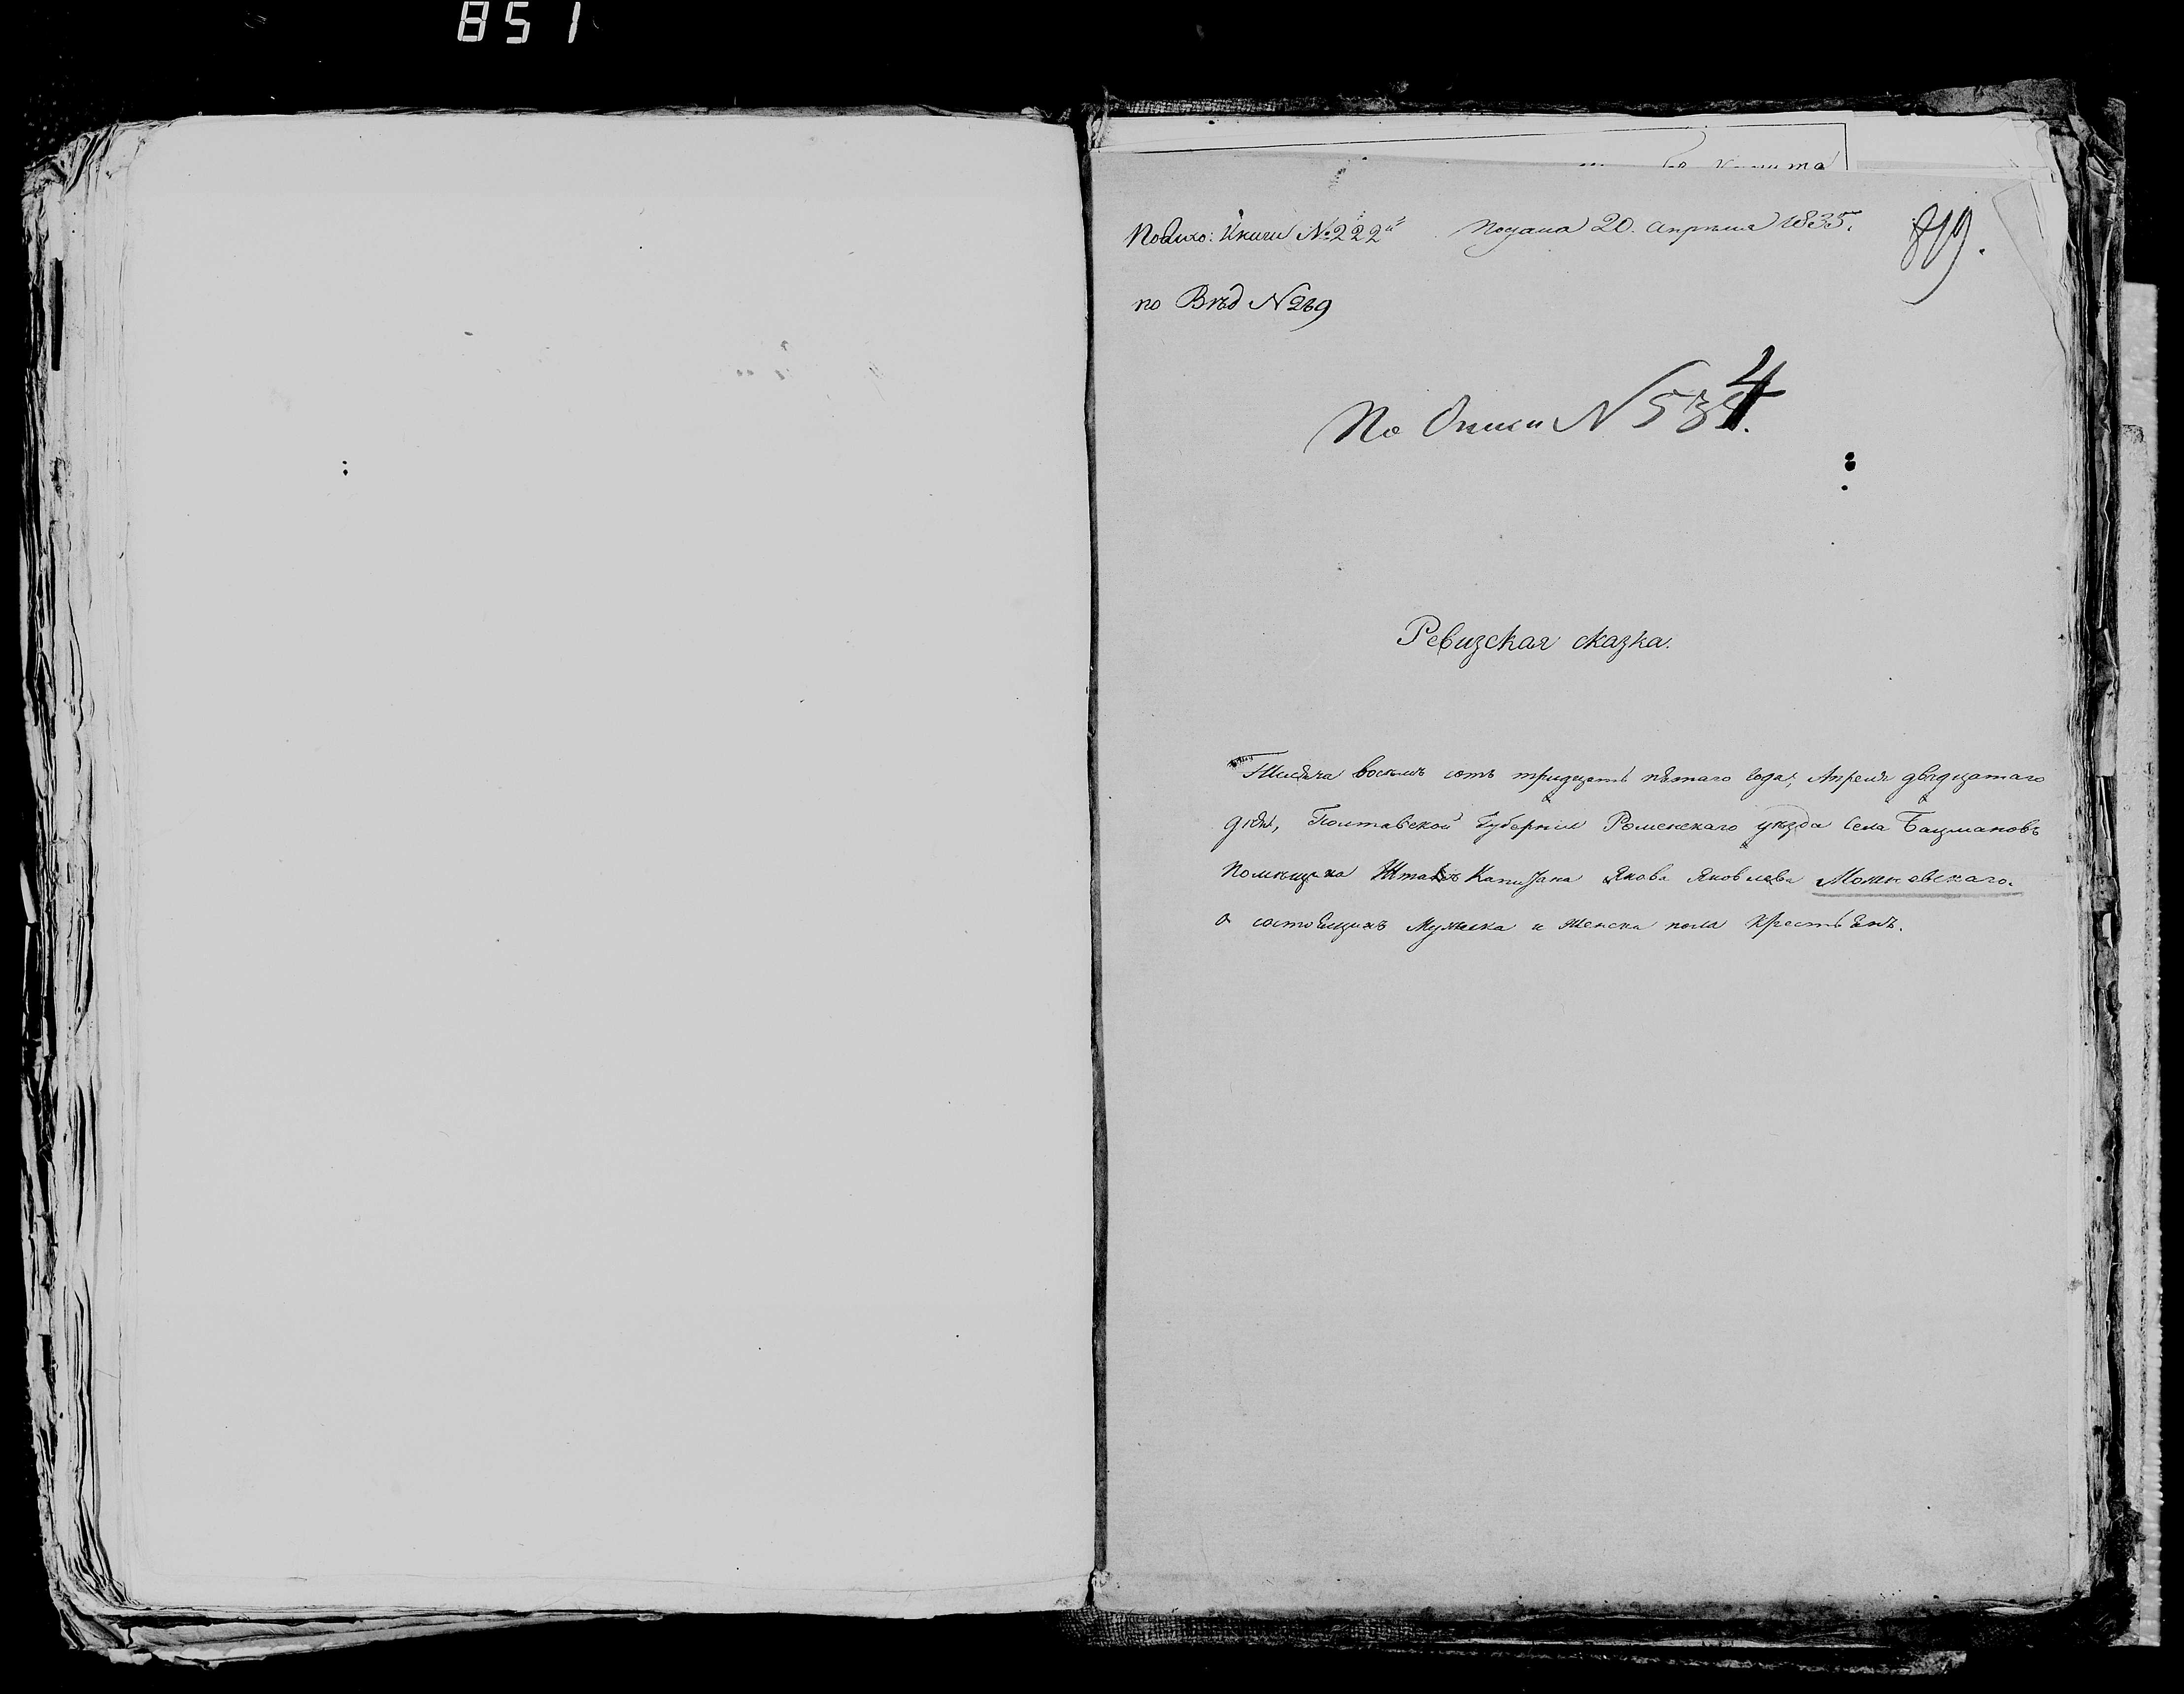 851
Подана 20. апреля 1835.
819.
Книги № 222й
по Вѣд № 269
По Описи № 534.
Ревизская сказка.
Тысяча восемь сотъ тридцать пятаго года, Апреля двадцатаго
дня, Полтавской Губерніи Роменскаго уѣзда Села Бацмановъ
Помещика Штабъ Капитана Якова Яковлева
о состоящихъ Мужеска и женска пола Крестьянъ.